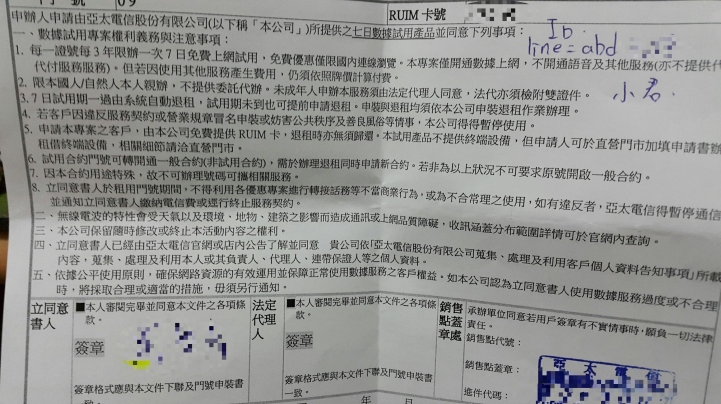 門 號 09
RUIM 卡號
申辦人申請由亞太電信股份有限公司(以下稱「本公司」)所提供之七日數據試用產品並同意下列事項：
Ib
line=abd
小君.
一、數據試用專案權利義務與注意事項：
1. 每一證號每 3 年限辦一次 7 日免費上網試用，免費優惠僅限國內連線瀏覽。本專案僅開通數據上網，不開通語音及其他服務(亦不提供代
代付服務服務)。但若因使用其他服務產生費用，仍須依照牌價計算付費。
2. 限本國人/自然人本人親辦，不提供委託代辦。未成年人申辦本服務須由法定代理人同意，法代亦須檢附雙證件。
3. 7 日試用期一過由系統自動退租，試用期未到也可提前申請退租。申裝與退租均須依本公司申裝退租作業辦理。
4. 若客戶因違反服務契約或營業規章冒名申裝或妨害公共秩序及善良風俗等情事，本公司得得暫停使用。
5. 申請本專案之客戶，由本公司免費提供 RUIM 卡，退租時亦無須歸還。本試用產品不提供終端設備，但申請人可於直營門市加填申請書辦
租借終端設備，相關細節請洽直營門市。
6. 試用合約門號可轉開通一般合約(非試用合約)，需於辦理退租同時申請新合約。若非為以上狀況不可要求原號開啟一般合約。
7. 因本合約用途特殊，故不可辦理號碼可攜相關服務。
8. 立同意書人於租用門號期間，不得利用各優惠專案進行轉接話務等不當商業行為，或為不合常理之使用，如有違反者，亞太電信得暫停通信
並通知立同意書人繳納電信費或逕行終止服務契約。
二、無線電波的特性會受天氣以及環境、地物、建築之影響而造成通訊或上網品質障礙，收訊涵蓋分布範圍詳情可於官網內查詢。
三、本公司保留隨時修改或終止本活動內容之權利。
四、立同意書人已經由亞太電信官網或店內公告了解並同意 貴公司依「亞太電信股份有限公司蒐集、處理及利用客戶個人資料告知事項」所載
內容，蒐集、處理及利用本人或其負責人、代理人、連帶保證人等之個人資料。
五、依據公平使用原則，確保網路資源的有效運用並保障正常使用數據服務之客戶權益。如本公司認為立同意書人使用數據服務過度或不合理
時，將採取合理或適當的措施，毋須另行通知。
立同意書人
■本人審閱完畢並同意本文件之各項條款。
簽章
簽章格式應與本文件下聯及門號申裝書一致。
法定代理人
■本人審閱完畢並同意本文件之各項條款。
簽章
簽章格式應與本文件下聯及門號申裝書一致。
銷售點蓋章處
承辦單位同意若用戶簽章有不實情事時，願負一切法律
責任。
銷售點代號：
銷售點蓋章：
亞太電信
進件代碼：
年 月